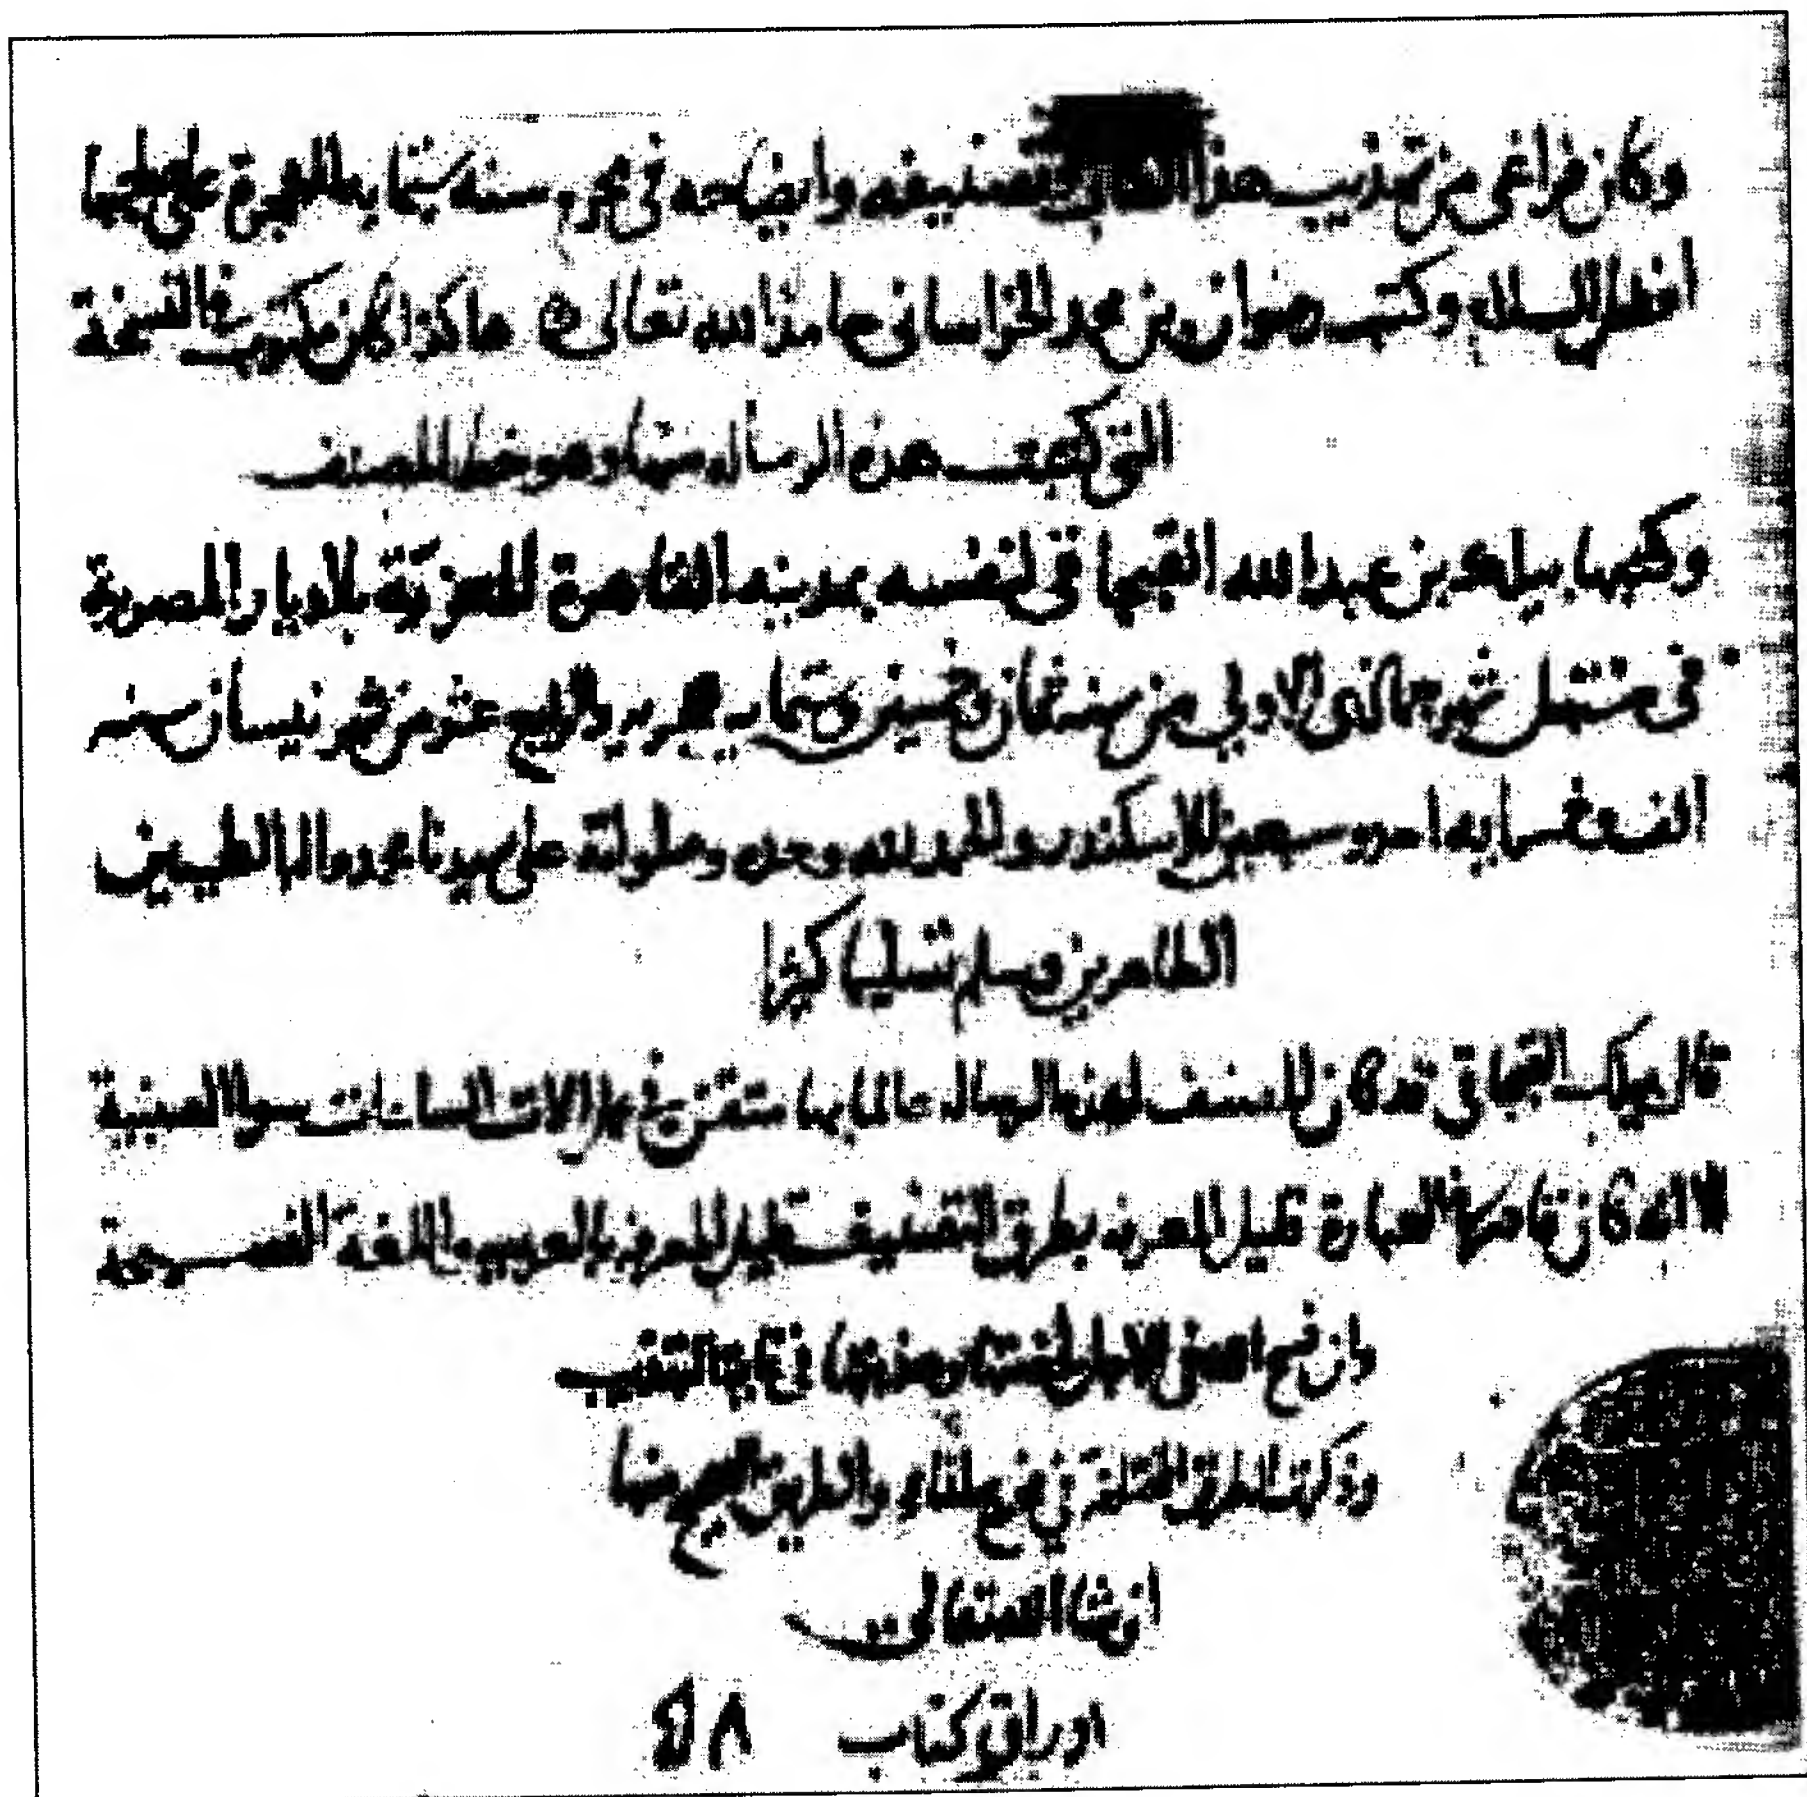 وكان فراغي من تهذيب هذا الكتاب وتصنيفه وايضاحه في محرم سنه ستمايه للهجرة على صاحبها
افضل السلام وكتب رضوان بن محمد الخراساني حامدا لله تعالى هاكذا كان مكتوب في النسخة
التي كتبت هذه الرساله منها وهو خط المصنف
وكتبها بيلك بن عبد الله القبجاقي لنفسه بمدينه القاهرة المعزية بلاديار المصرية
في مستهل شهر جمادى الاولي من سنه ثمان وخمسين وستمايه هجريه والرابع عشر من شهر نيسان سنه
الف وخمسمايه احد وسبعين للاسكندر والحمد لله وحده وصلواته على سيدنا محمد واله الطيبين
الطاهرين وسلم تسليما كثيرا
قال بيلك القبجاقي قد كان المصنف لهذه الرساله عالما بها متقن الات الساعات سوا الصينية
الا انه كان قاصر العبارة قليل المعرفه بطرق التصنيف قليل المعرفه بالعربيه واللغة الفصيحة
وان فسح الله في الاجل لخصتها وهذبتها في غاية التهذيب
وذكرت الطرق المختلفة في والطريق الصحيح منها
ان شا الله تعالى
اوراق كتاب ٥٨